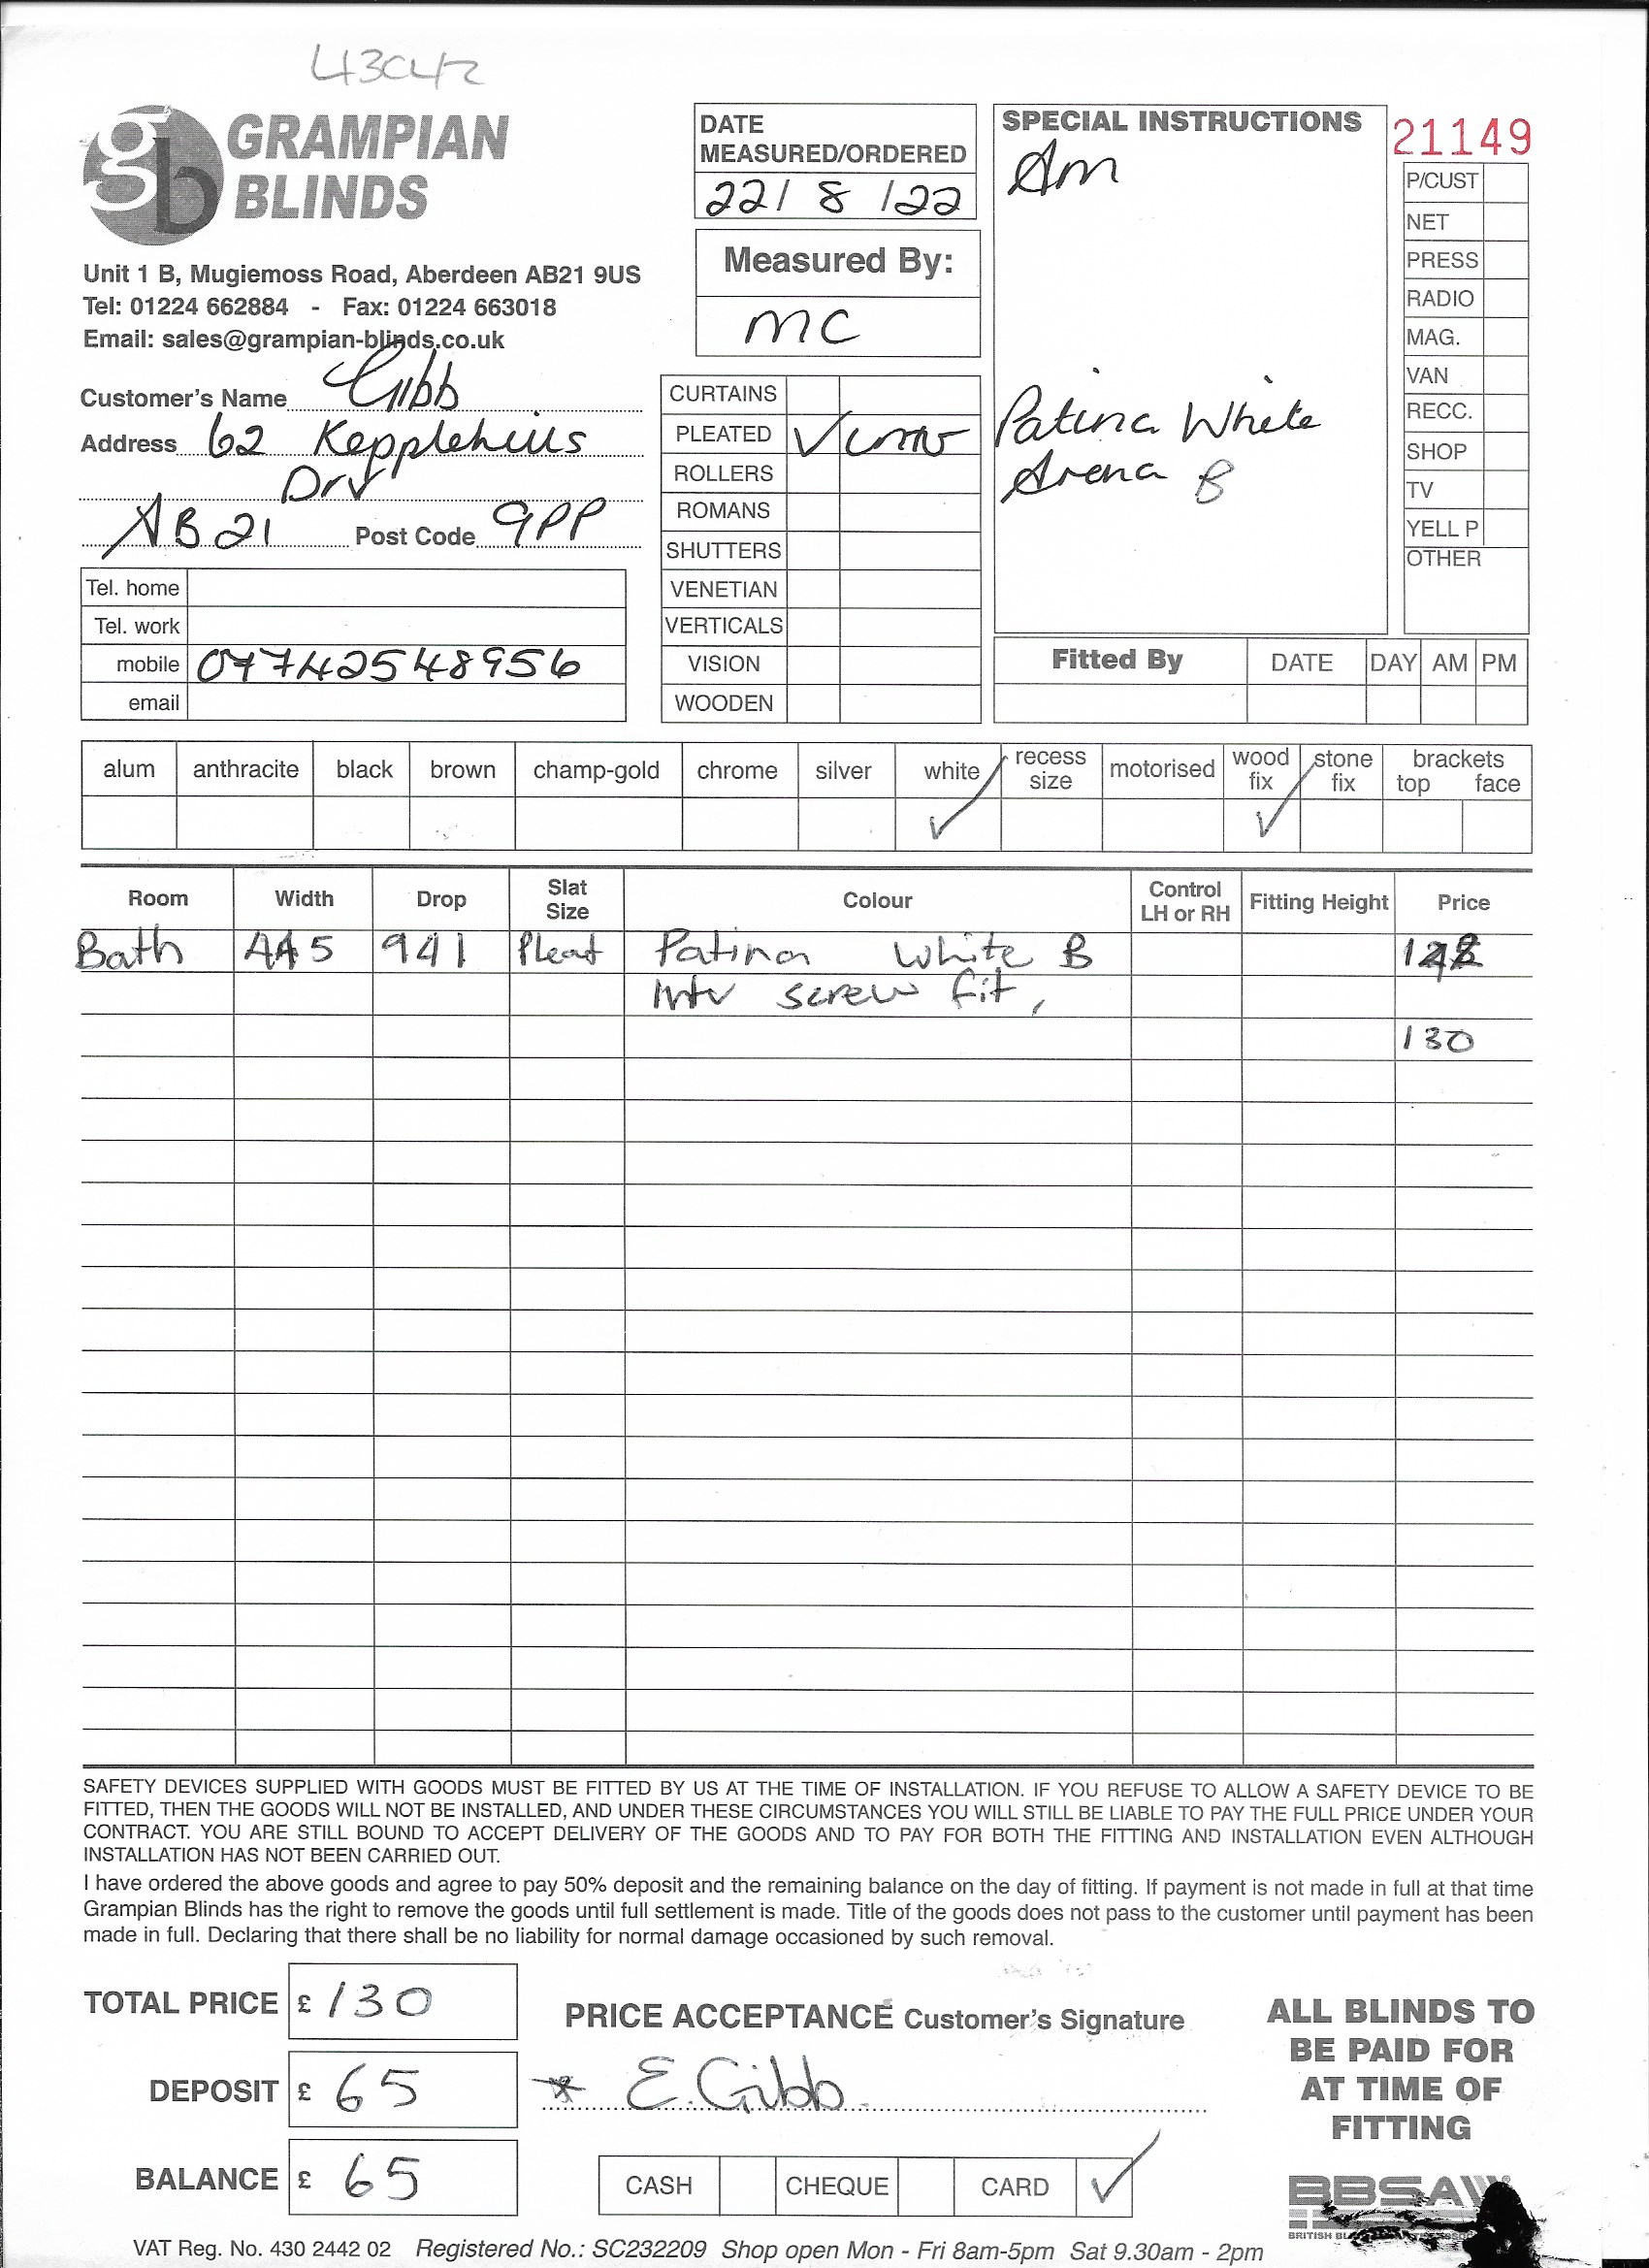 43042
GRAMPIAN
BLINDS
Unit 1 B, Mugiemoss Road, Aberdeen AB21 9US
Tel: 01224 662884 - Fax: 01224 663018
Email: sales@grampian-blinds.co.uk
Customer's Name Gibb
Address 62 Kepplehills
Drv
AB21 Post Code 9PP
Tel. home
Tel. work
mobile 07742548956
email
DATE
MEASURED/ORDERED
22/8/22
Measured By:
MC
CURTAINS
PLEATED ✓
ROLLERS
ROMANS
SHUTTERS
VENETIAN
VERTICALS
VISION
WOODEN
SPECIAL INSTRUCTIONS
Am
Patina White
Arena B
21149
P/CUST
NET
PRESS
RADIO
MAG.
VAN
RECC.
SHOP
TV
YELL P
OTHER
Fitted By DATE DAY AM PM
alum anthracite black brown champ-gold chrome silver white ✓ recess size motorised wood fix ✓ stone fix brackets top face
Room Width Drop Slat Size Colour Control LH or RH Fitting Height Price
Bath 445 941 Pleat Patina White B
screw fit,
130
SAFETY DEVICES SUPPLIED WITH GOODS MUST BE FITTED BY US AT THE TIME OF INSTALLATION. IF YOU REFUSE TO ALLOW A SAFETY DEVICE TO BE
FITTED, THEN THE GOODS WILL NOT BE INSTALLED, AND UNDER THESE CIRCUMSTANCES YOU WILL STILL BE LIABLE TO PAY THE FULL PRICE UNDER YOUR
CONTRACT. YOU ARE STILL BOUND TO ACCEPT DELIVERY OF THE GOODS AND TO PAY FOR BOTH THE FITTING AND INSTALLATION EVEN ALTHOUGH
INSTALLATION HAS NOT BEEN CARRIED OUT.
I have ordered the above goods and agree to pay 50% deposit and the remaining balance on the day of fitting. If payment is not made in full at that time
Grampian Blinds has the right to remove the goods until full settlement is made. Title of the goods does not pass to the customer until payment has been
made in full. Declaring that there shall be no liability for normal damage occasioned by such removal.
TOTAL PRICE £ 130
DEPOSIT £ 65
BALANCE £ 65
PRICE ACCEPTANCE Customer's Signature
* E. Gibb
CASH CHEQUE CARD ✓
ALL BLINDS TO
BE PAID FOR
AT TIME OF
FITTING
BBSA
BRITISH
VAT Reg. No. 430 2442 02 Registered No.: SC232209 Shop open Mon - Fri 8am-5pm Sat 9.30am - 2pm